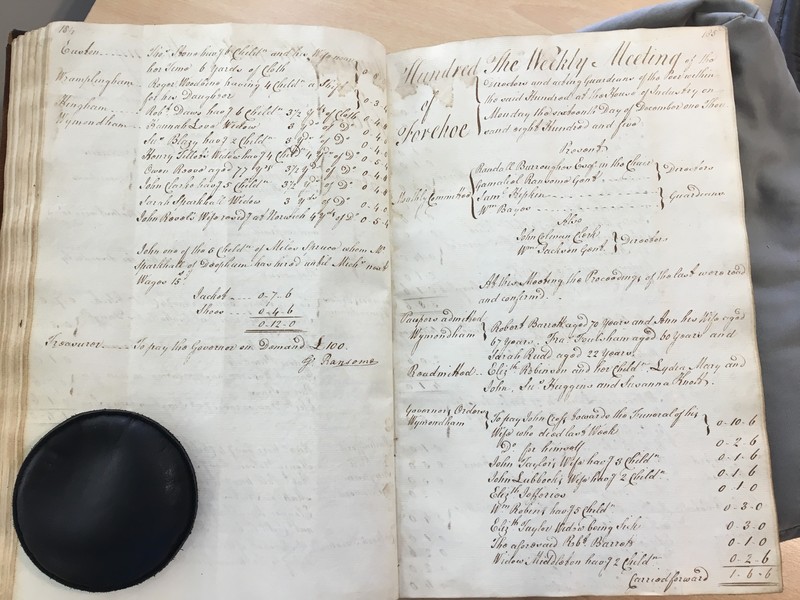 184
Easton
Tho.s Stone hav.g 6 Child.n and his Wife
her time 6 Yards of Cloth
Wramplingham
Roger Woodrow having 4 Child.n a Shift
for his Daughter
Hingham
Rob.t Daws hav.g 6 Child.n 3½ Y.ds of Cloth 0-4-
Wymondham
Hannah Love Widow 3 Y.ds of D.o 0-4-
Ja.s Blazy hav.g 2 Child.n 3 Y.ds of D.o 0-4-
Henry Widow hav.g 4 Child.n 4 Y.ds of D.o 0-5-4
Owen Reeve aged 77 Y.rs 3½ Y.ds of D.o 0-4-8
John Clarke hav.g 5 Child.n 3½ Y.ds of D.o 0-4-
Sarah Sparkhall Widow 3 Y.ds of D.o 0-4-
John Wife resid.g at Norwich 4 Y.ds of D.o 0-5-4
John one of the 5 Child.n of Miles Spruce whom M.r
Sparkhall of Deopham has hired until Mich.s next
Wages 15.s
Jacket 0-7-6
Shoes 0-4-6
0-12-0
Treasurer To pay the Governor on Demand £100.
G. Ransome
185
Hundred of Forehoe
The Weekly Meeting of the
Directors and acting Guardians of the Poor within
the said Hundred at the House of Industry on
Monday the sixteenth Day of December one Thou
sand eight Hundred and five.
Present
Monthly Committee
Randall Burroughes Esq.r in the Chair
Gamaliel Ransome Gent
Directors
Sam.l Stephen
W.m Bayes
Guardians
Also
John Colman Clerk
W.m Jackson Gent
Directors
At this Meeting the Proceedings of the last were read
and confirmed.
Paupers admitted
Wymondham
Robert Barrett aged 70 Years and Ann his Wife aged
67 Years, Fra.s Foulsham aged 60 Years and
Sarah Rudd aged 22 Years.
Readmitted Eliz.th Robinson and her Child.n Lydia Mary and
John, Su.s Huggins and Susanna Knott.
Governors Orders
Wymondham
To pay John Cross towards the Funeral of his
Wife who died last Week 0-10-6
D.o for himself 0-2-6
John Taylors Wife hav.g 3 Child.n 0-1-6
John Lubbocks Wife hav.g 2 Child.n 0-1-6
Eliz.th Jefferies 0-1-0
W.m Robins hav.g 5 Child.n 0-3-0
Eliz.th Taylor Widow being Sick 0-3-0
The aforesaid Rob.t Barrett 0-1-0
Widow Middleton hav.g 2 Child.n 0-2-6
Carried forward 1-6-6